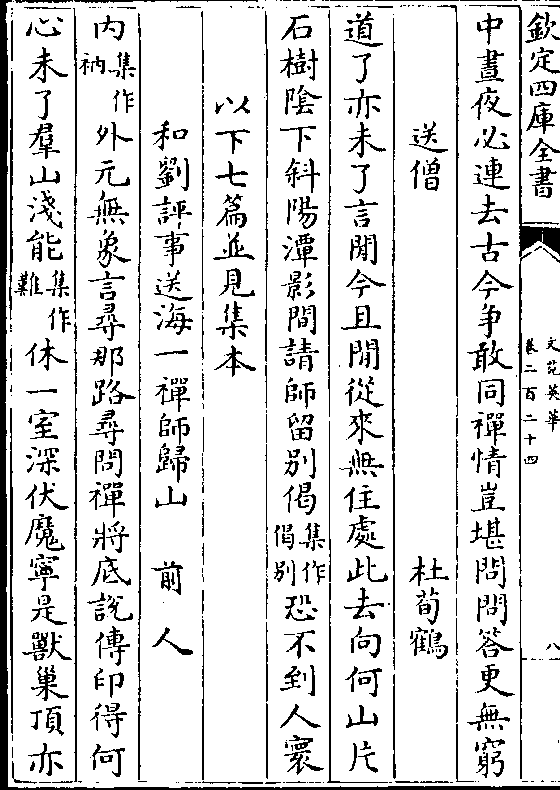 欽定四庫全書
文苑英華
卷二百二十四
八
中晝夜必連去古今争敢同禪情豈堪問問答更無窮
送僧　杜荀鶴
道了亦未了言閒今且閒從來無住處此去向何山片
石樹陰下斜陽潭影間請師留别偈集作偈别恐不到人寰
以下七篇並見集本
和劉評事送海一禪師歸山　前人
内集作衲外元無象言尋那路尋問禪將底說傳印得何
心未了羣山淺能集作難休一室深伏魔寧是獸巢頂亦